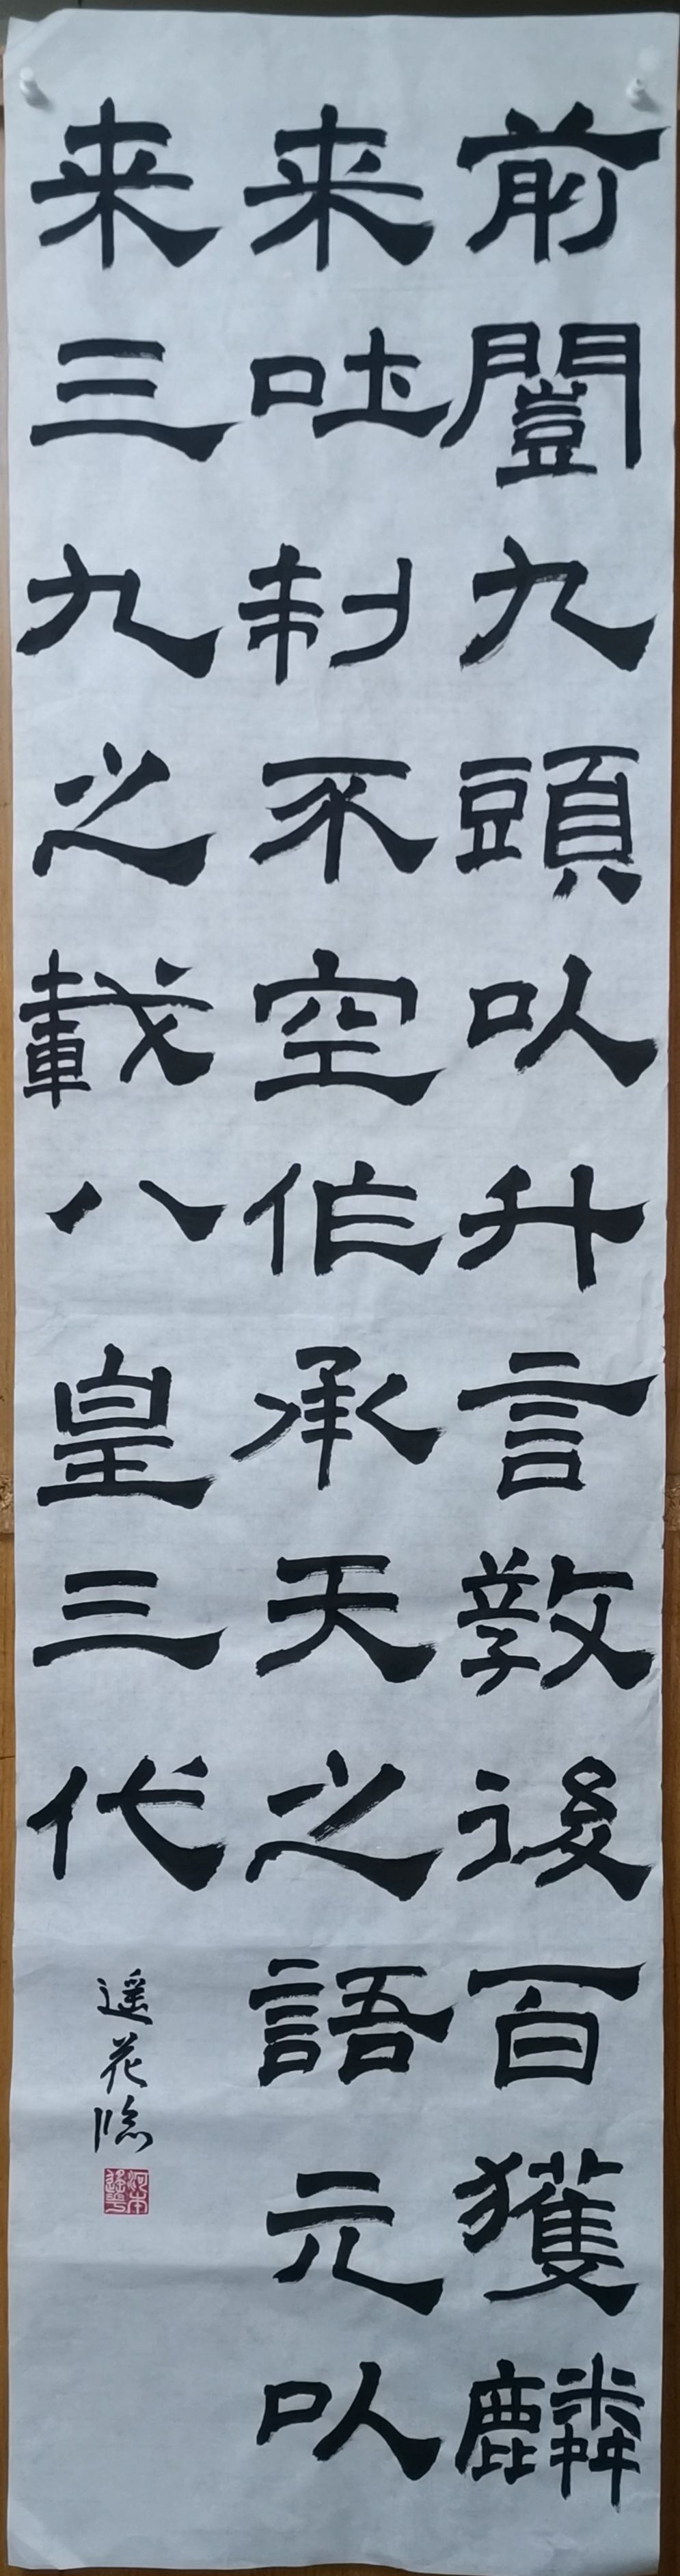 前闓九頭以升言敎後百獲麟
来吐制不空作承天之語元以
来三九之載八皇三代
遥花隐